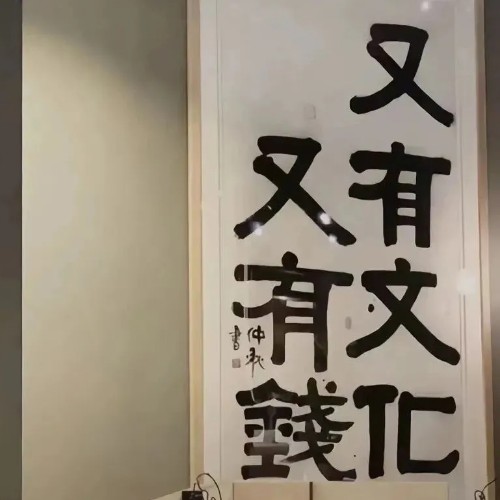 又有文化
又有錢
仲秋
書